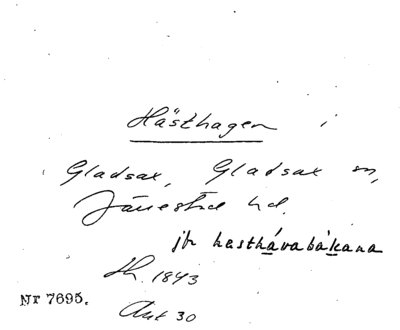 Hästhagen i
Gladsax, Gladsax sn,
Järrestad hd.
jfr hesthávabákana
Sk. 1843
Nr 7695.
Akt 30